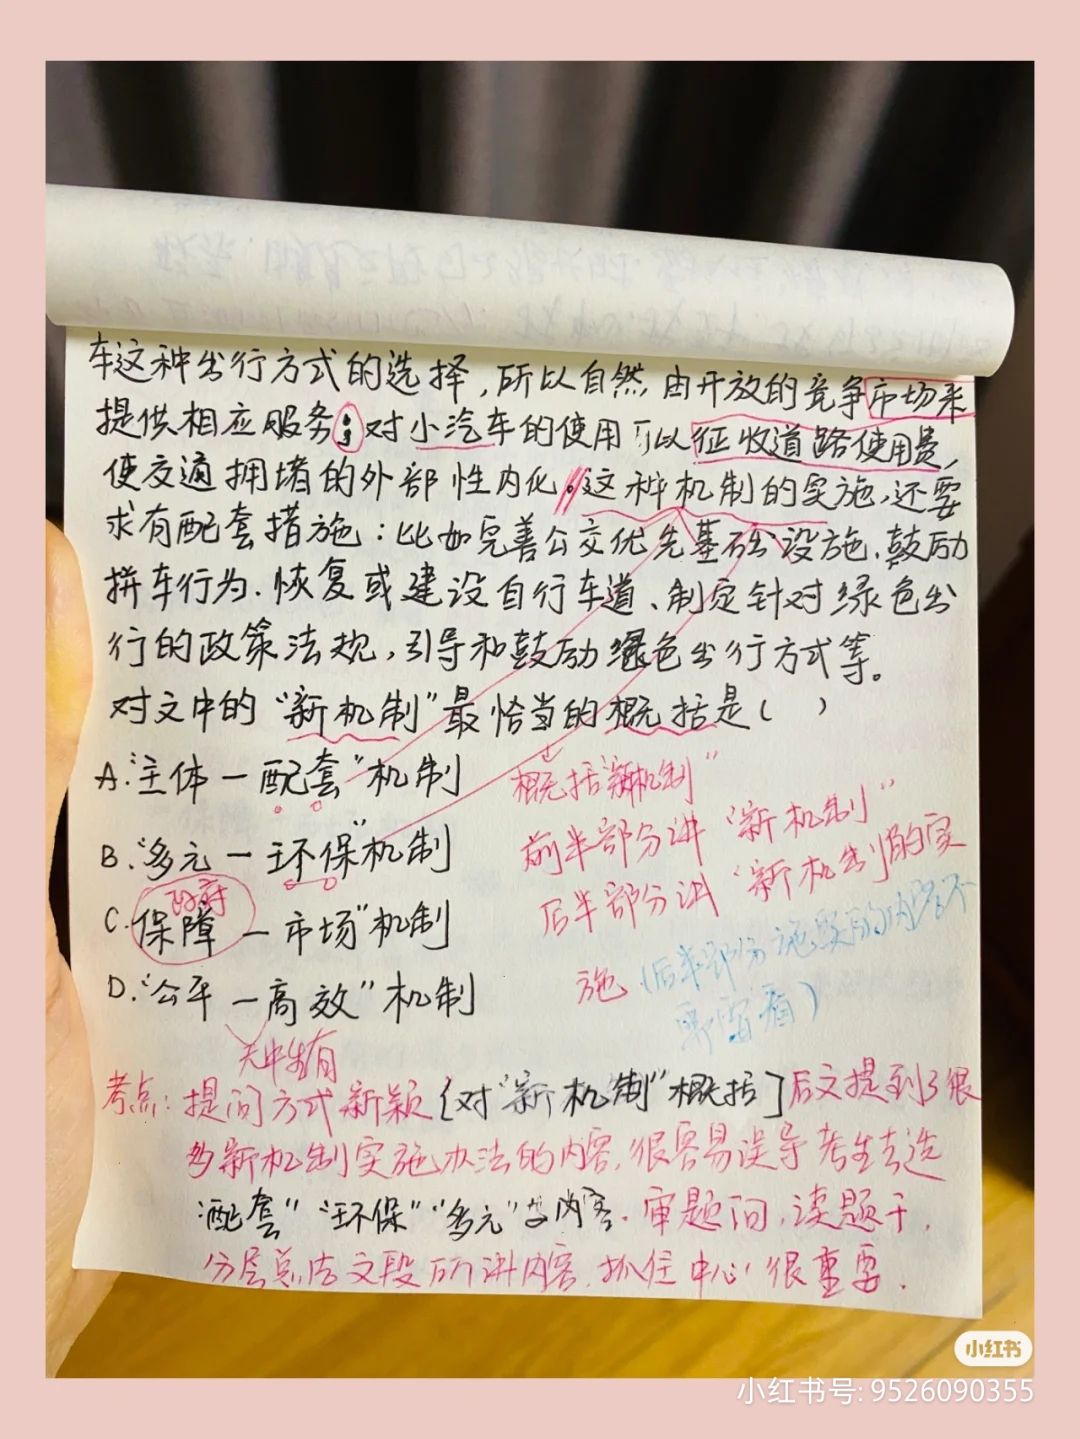 车这种出行方式的选择，所以自然，由开放的竞争市场来
提供相应服务；对小汽车的使用可以征收道路使用费，
使交通拥堵的外部性内化。这种机制的实施，还要
求有配套措施：比如完善公交优先基础设施、鼓励
拼车行为、恢复或建设自行车道、制定针对绿色出
行的政策法规，引导和鼓励绿色出行方式等。
对文中的“新机制”最恰当的概括是（ ）
A.“主体—配套”机制
概括“新机制”
前半部分讲“新机制”
B.“多元—环保”机制
后半部分讲“新机制的实
施（后半部分施实的内容不
要留看）
政府
C.保障—市场”机制
D.“公平—高效”机制
无中生有
考点：提问方式新颖{对“新机制”概括]后文提到了很
多新机制实施办法的内容，很容易误导考生去选
“配套”“环保”“多元”等内容。审题问，读题干，
分层总结文段所讲内容，抓住中心很重要。
小红书
小红书号: 9526090355